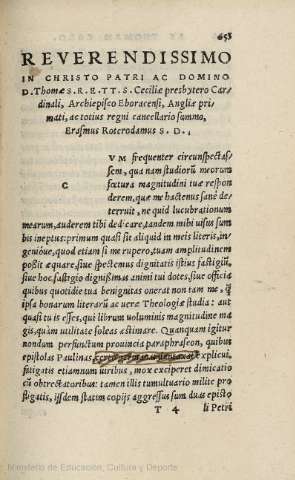 658
REVERENDISSIMO
IN CHRISTO PATRI AC DOMINO
D. Thomæ S. R. E. TT. S. Ceciliæ presbytero Car
dinali, Archiepisco Eboracensi, Angliæ pri
mati, ac totius regni cancellario summo,
Erasmus Roterodamus S. D.
C
VM frequenter circunspectas
sem, qua nam studiorũ meorum
factura magnitudini tuæ respon
derem, quæ me hactenus sanè de
terruit, ne quid lucubrationum
mearum, auderem tibi dedicare, tandem mihi uisus sum
bis ineptus: primum quasi sit aliquid in meis literis, in
genioue, quod etiam si me rupero, tuam amplitudinem
possit æquare, siue spectemus dignitatis istius fastigiũ,
siue hoc fastigio dignissimas animi tui dotes, siue officia
quibus quotidie tua benignitas onerat non tam me, q̃
ipsa bonarum literarũ ac ueræ Theologiæ studia: aut
quasi tu is esses, qui librum uoluminis magnitudine ma
gis, quàm utilitate soleas æstimare. Quanquam igitur
nondum perfunctum prouincia paraphraseon, quibus
epistolas Paulinas explicui,
fatigatis etiamnum uiribus, mox exciperet dimicatio
cũ obtrectatoribus: tamen illis tumultuario milite pro
fligatis, ijsdem statim copijs aggressus sum duas episto
T 4
li Petri
Ministerio de Educación, Cultura y Deporte